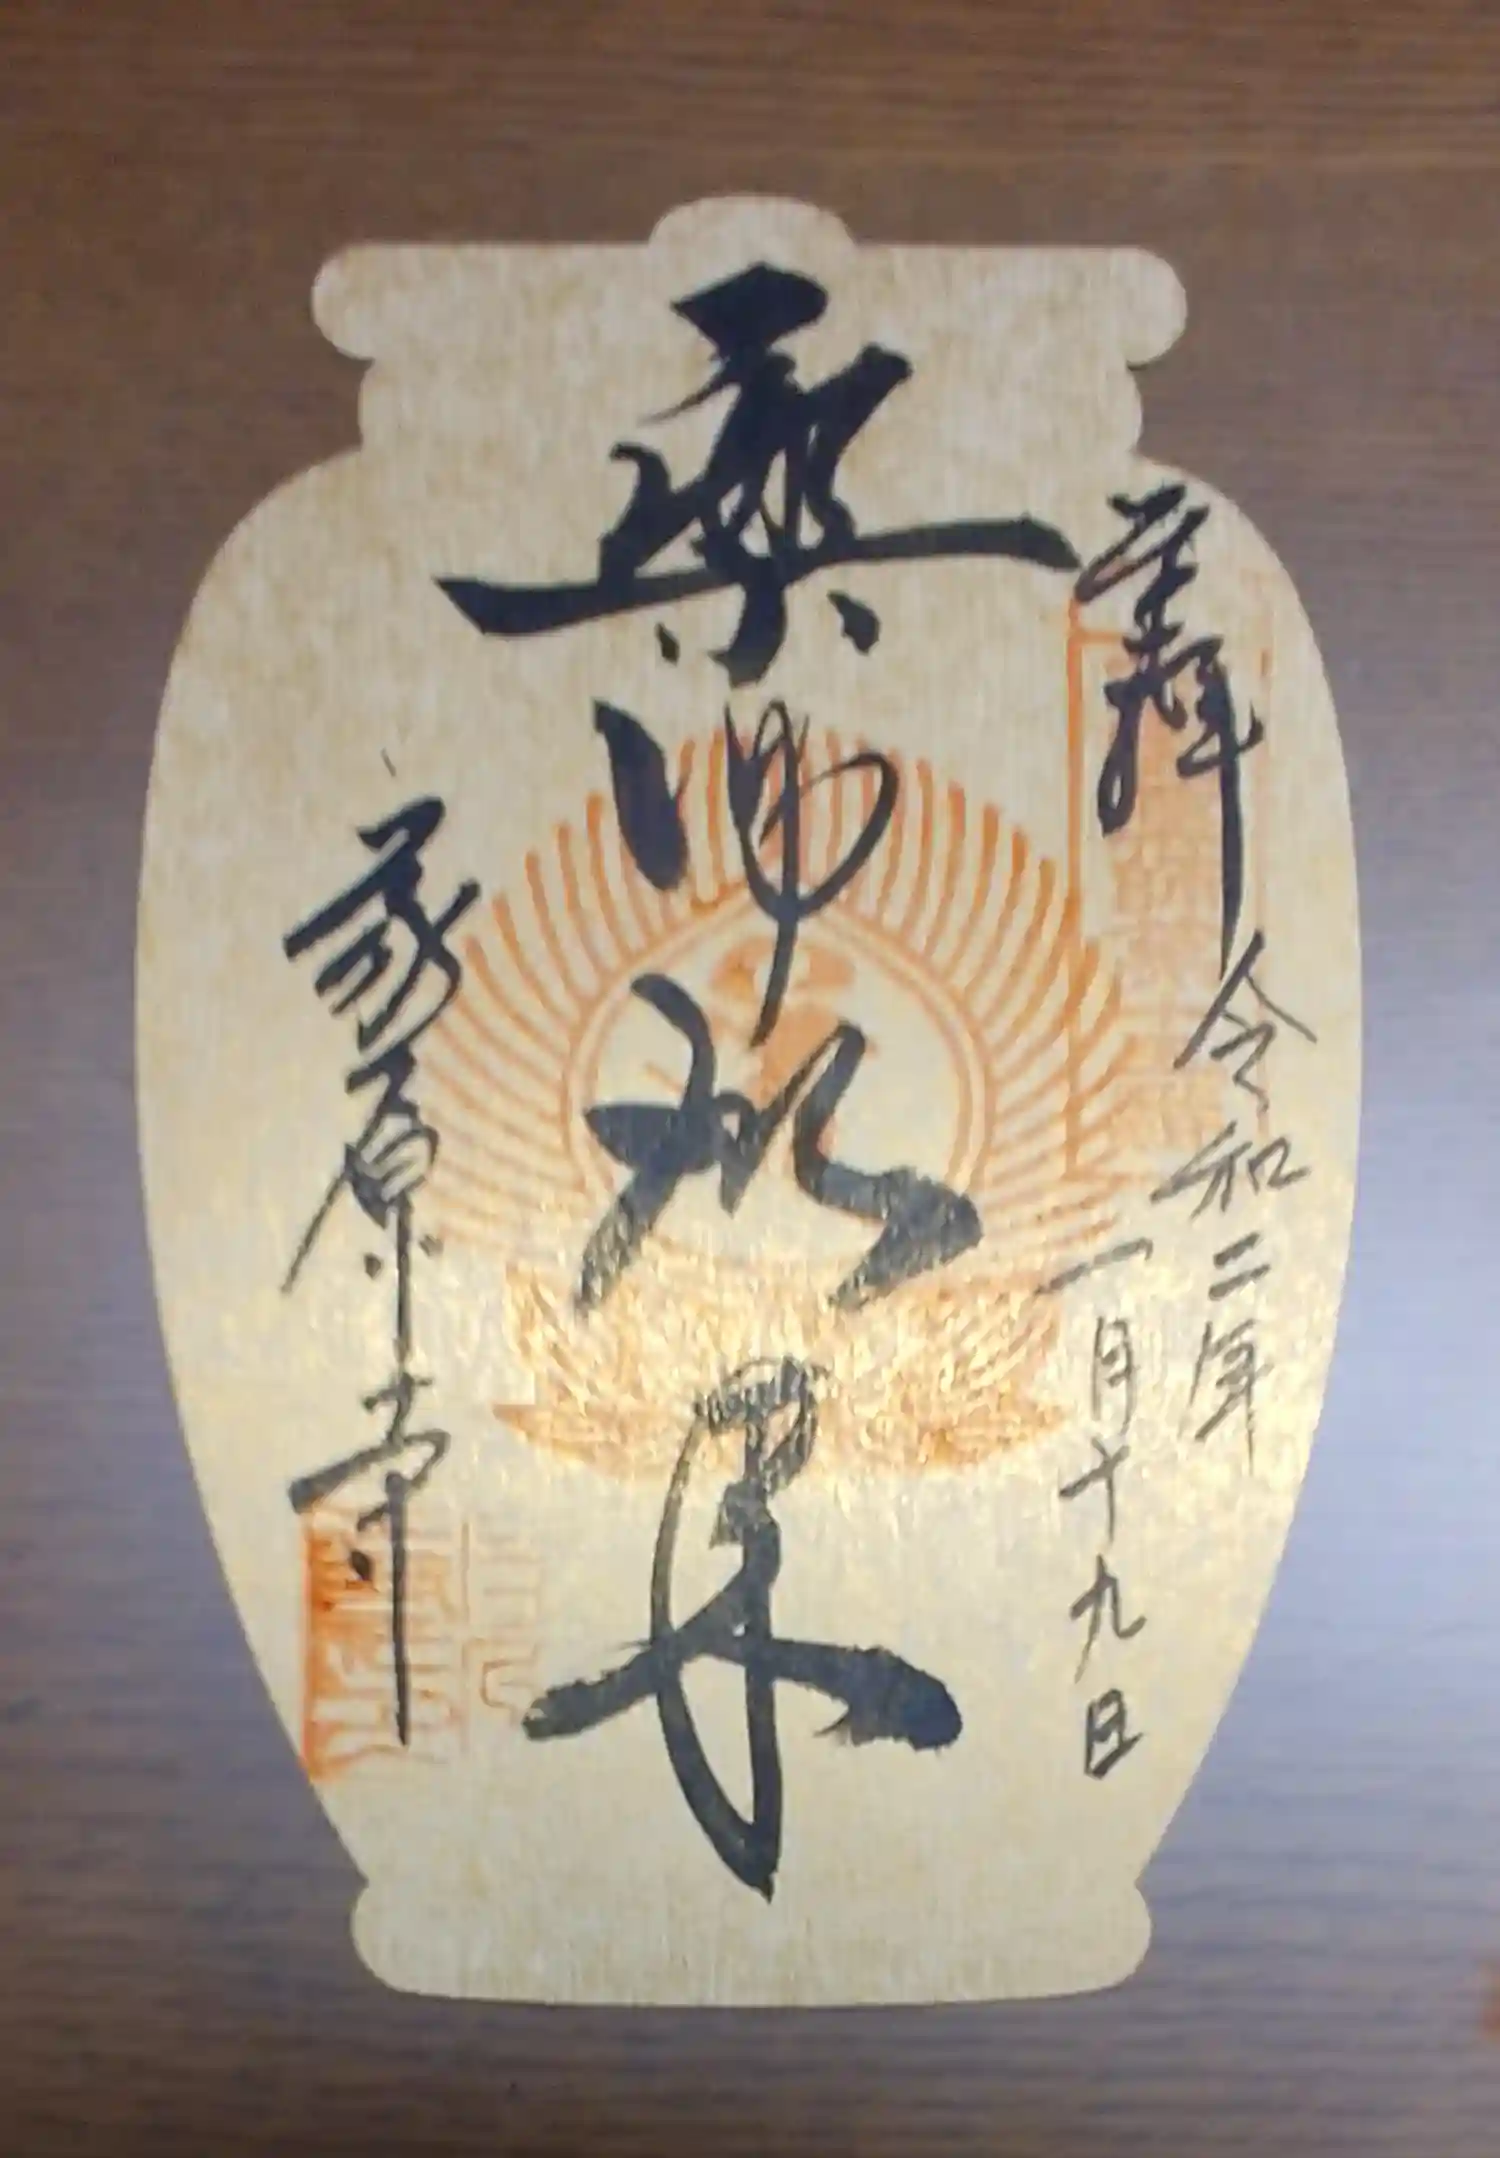 奉拝
令和二年
一月十九日
薬師如来
原寺